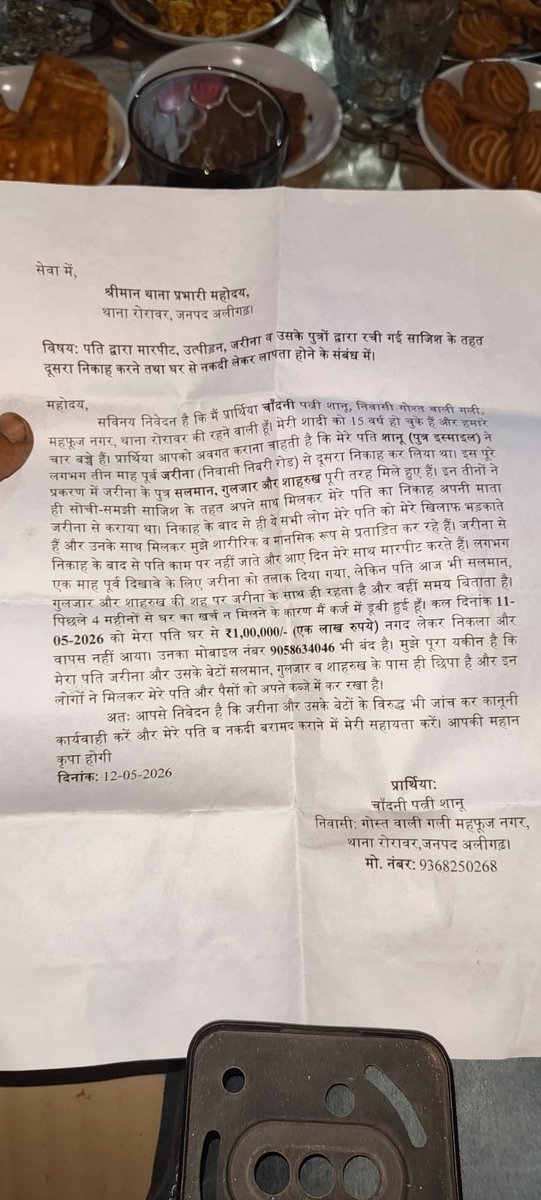 सेवा में,
श्रीमान थाना प्रभारी महोदय,
थाना रोरावर, जनपद अलीगढ़।
विषय: पति द्वारा मारपीट, उत्पीड़न, जरीना व उसके पुत्रों द्वारा रची गई साजिश के तहत
दूसरा निकाह करने तथा घर से नकदी लेकर लापता होने के संबंध में।
महोदय,
सविनय निवेदन है कि मैं प्रार्थिया चाँदनी पत्नी शानू, निवासी गोस्त वाली गली,
महफूज नगर, थाना रोरावर की रहने वाली हूँ। मेरी शादी को 15 वर्ष हो चुके हैं और हमारे
चार बच्चे हैं। प्रार्थिया आपको अवगत कराना चाहती है कि मेरे पति शानू (पुत्र इस्माइल) ने
लगभग तीन माह पूर्व जरीना (निवासी निबरी रोड) से दूसरा निकाह कर लिया था। इस पूरे
प्रकरण में जरीना के पुत्र सलमान, गुलजार और शाहरुख पूरी तरह मिले हुए हैं। इन तीनों ने
ही सोची-समझी साजिश के तहत अपने साथ मिलकर मेरे पति का निकाह अपनी माता
जरीना से कराया था। निकाह के बाद से ही ये सभी लोग मेरे पति को मेरे खिलाफ भड़काते
हैं और उनके साथ मिलकर मुझे शारीरिक व मानसिक रूप से प्रताड़ित कर रहे हैं। जरीना से
निकाह के बाद से पति काम पर नहीं जाते और आए दिन मेरे साथ मारपीट करते हैं। लगभग
एक माह पूर्व दिखावे के लिए जरीना को तलाक दिया गया, लेकिन पति आज भी सलमान,
गुलजार और शाहरुख की शह पर जरीना के साथ ही रहता है और वहीं समय बिताता है।
पिछले 4 महीनों से घर का खर्च न मिलने के कारण मैं कर्ज में डूबी हुई हूँ। कल दिनांक 11-
05-2026 को मेरा पति घर से ₹1,00,000/- (एक लाख रुपये) नगद लेकर निकला और
वापस नहीं आया। उनका मोबाइल नंबर 9058634046 भी बंद है। मुझे पूरा यकीन है कि
मेरा पति जरीना और उसके बेटों सलमान, गुलजार व शाहरुख के पास ही छिपा है और इन
लोगों ने मिलकर मेरे पति और पैसों को अपने कब्जे में कर रखा है।
अतः आपसे निवेदन है कि जरीना और उसके बेटों के विरुद्ध भी जांच कर कानूनी
कार्यवाही करें और मेरे पति व नकदी बरामद कराने में मेरी सहायता करें। आपकी महान
कृपा होगी
दिनांक: 12-05-2026
प्रार्थिया:
चाँदनी पत्नी शानू
निवासी: गोस्त वाली गली महफूज नगर,
थाना रोरावर,जनपद अलीगढ़।
मो. नंबर: 9368250268